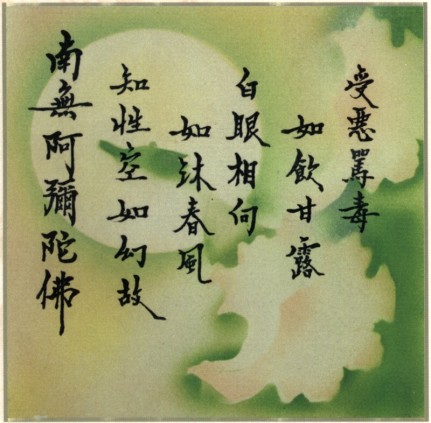 受惡罵毒
如飲甘露
白眼相向
如沐春風
知性空如幻故
南無阿彌陀佛